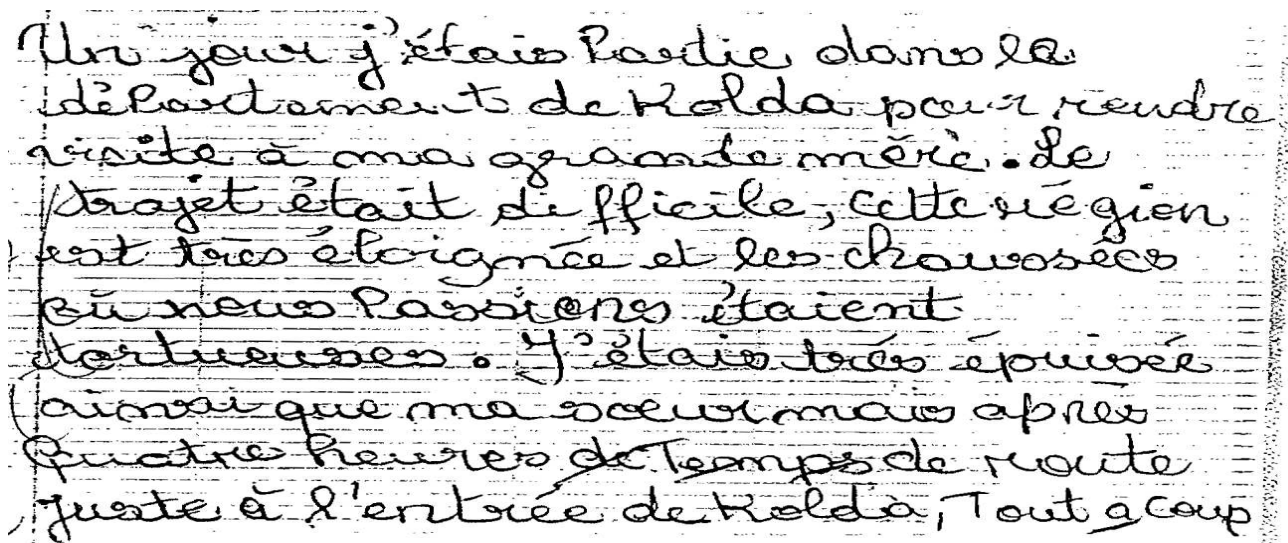 Un jour j'étais Partie dans le
département de Kolda pour rendre
visite à ma grande mère. Le
trajet était difficile, cette région
est très éloignée et les chaussées
où nous Passions étaient
tortueuses. J'étais très épuisée
ainsi que ma soeur mais après
Quatre heures de Temps de route
juste à l'entrée de Kolda, Tout a coup